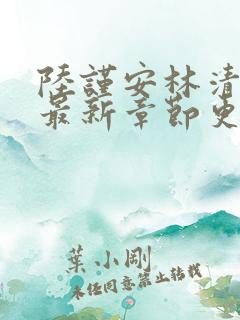 陸謹安林清
最新章節史
葉小剛
未经同意禁止转载